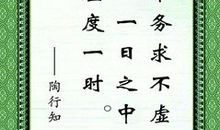 务求不虚
一日之中
度一时。
——陶行知